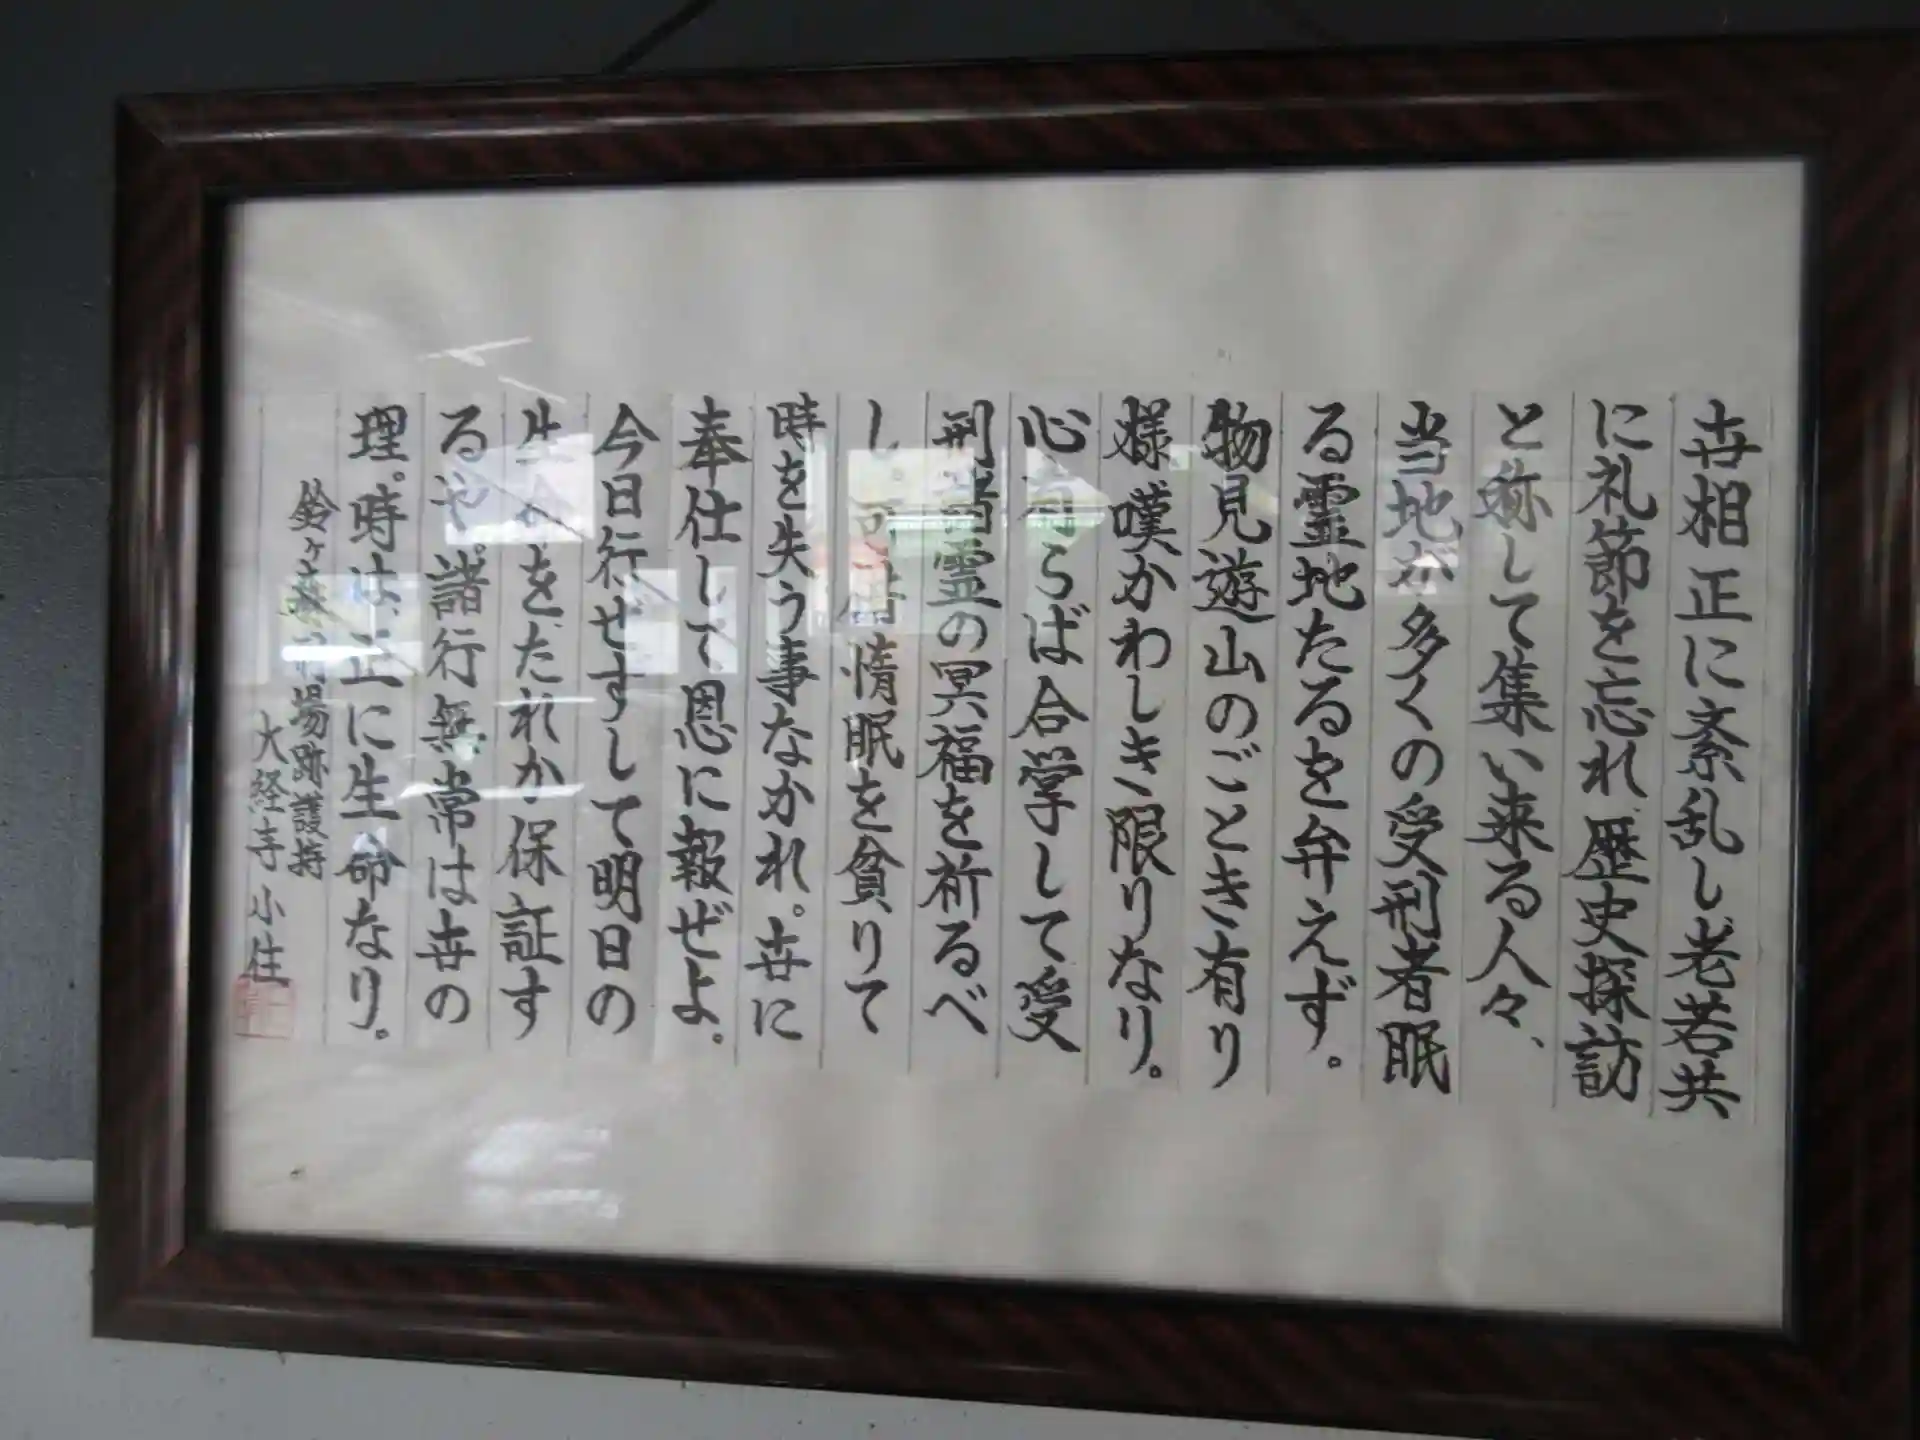 世相正に紊乱し老若共
に礼節を忘れ歴史探訪
と称して集い来る人々、
当地が多くの受刑者眠
る霊地たるを弁えず。
物見遊山のごとき有り
様嘆かわしき限りなり。
心有らば合掌して受
刑霊の冥福を祈るべ
し 惰眠を貪りて
時を失う事なかれ。世に
奉仕して、恩に報ぜよ。
今日行ぜずして明日の
生命をたれか保証す
るや。諸行無常は世の
理。時は、正に生命なり。
鈴ヶ森刑場跡護持
大経寺 小住